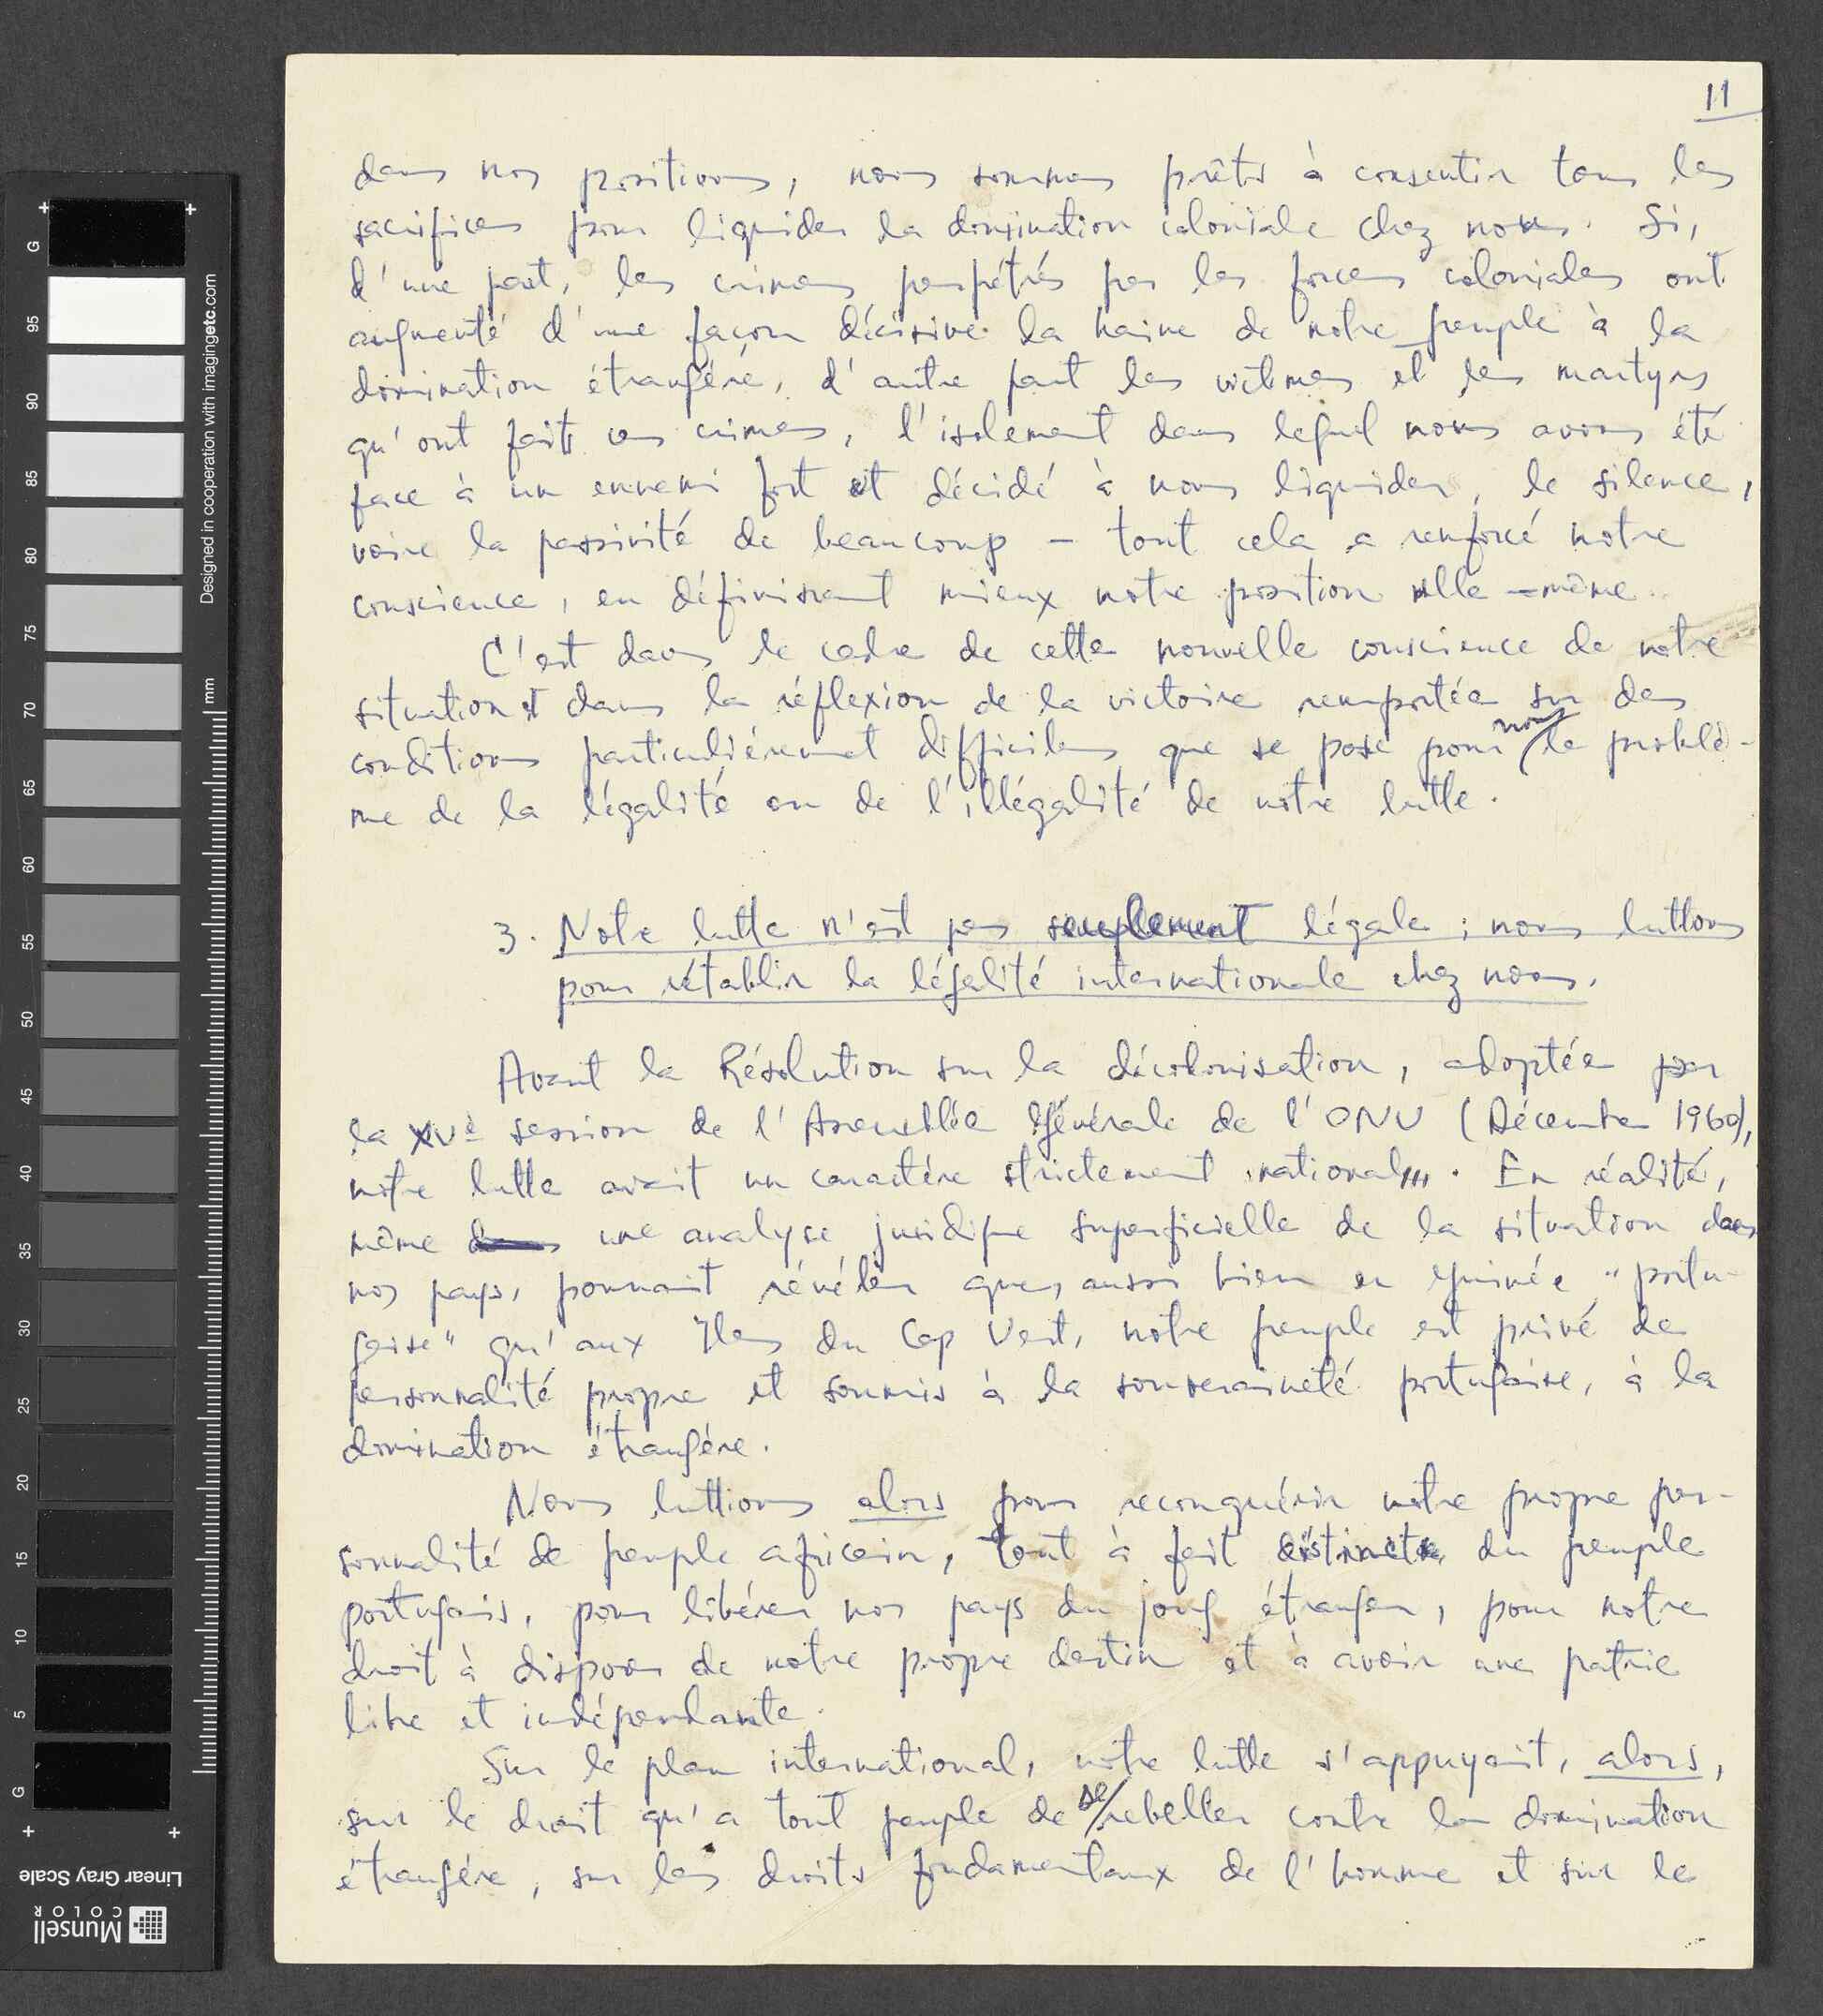 11
dans nos positions, nous sommes prêts à consentir tous les
sacrifices pour liquider la domination coloniale chez nous. Si,
d'une part, les crimes perpétrés par les forces coloniales ont
augmenté d'une façon décisive la haine de notre peuple à la
domination étrangère, d'autre part les victimes et les martyrs
qu'ont faits ces crimes, l'isolement dans lequel nous avons été
face à un ennemi fort et décidé à nous liquider, le silence,
voire la passivité de beaucoup - tout cela a renforcé notre
conscience, en définissant mieux notre position elle-même.
C'est dans le cadre de cette nouvelle conscience de notre
situation et dans la réflexion de la victoire remportée sur des
conditions particulièrement difficiles que se pose pour nous le problè-
me de la légalité ou de l'illégalité de notre lutte.
3. Notre lutte n'est pas seulement légale ; nous luttons
pour rétablir la légalité internationale chez nous.
Avant la Résolution sur la décolonisation, adoptée par
la XVè session de l'Assemblée Générale de l'ONU (Décembre 1960),
notre lutte avait un caractère strictement national. En réalité,
même une analyse juridique superficielle de la situation dans
nos pays, pouvait révéler que, aussi bien en Guinée "portu-
gaise" qu'aux Iles du Cap Vert, notre peuple est privé de
personnalité propre et soumis à la souveraineté portugaise, à la
domination étrangère.
Nous luttions alors pour reconquérir notre propre per-
sonnalité de peuple africain, tout à fait distincte du peuple
portugais, pour libérer nos pays du joug étranger, pour notre
droit à disposer de notre propre destin et à avoir une patrie
libre et indépendante.
Sur le plan international, notre lutte s'appuyait, alors,
sur le droit qu'a tout peuple de se rebeller contre la domination
étrangère, sur les droits fondamentaux de l'homme et sur le
Designed in cooperation with imagingetc.com
mm
G
95
90
85
80
75
70
65
60
55
50
45
40
35
30
25
20
15
10
5
G
Linear Gray Scale
Munsell
COLOR